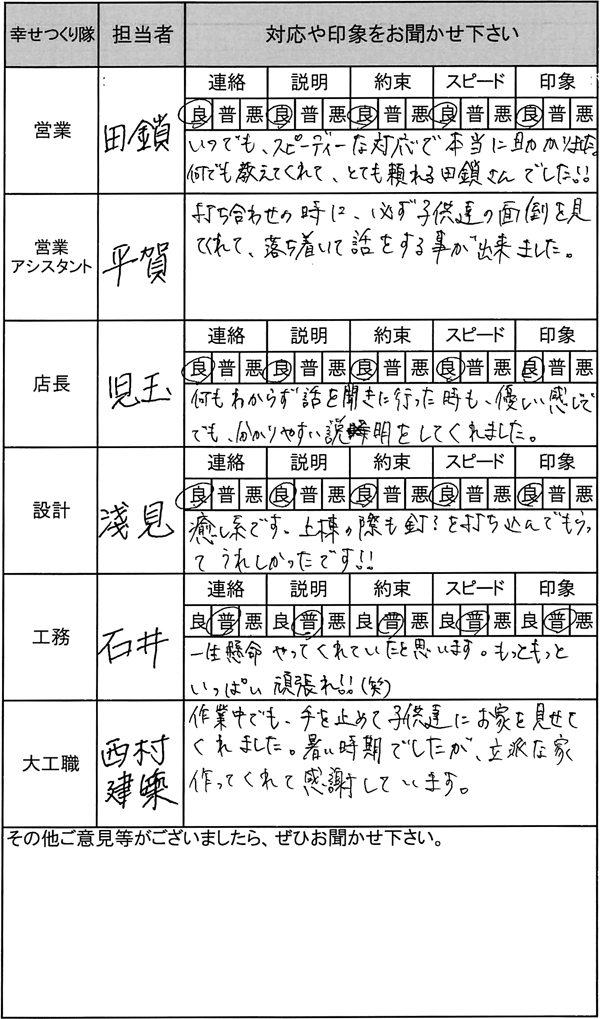 幸せつくり隊 担当者 対応や印象をお聞かせ下さい
営業 田鎖
連絡 説明 約束 スピード 印象
良 普 悪 良 普 悪 良 普 悪 良 普 悪 良 普 悪
いつでも、スピーディーな対応で本当に助かりました。
何でも教えてくれて、とても頼れる田鎖さんでした!!
営業
アシスタント
平賀
打ち合わせの時に、必ず子供達の面倒を見
てくれて、落ち着いて話をする事が出来ました。
店長 児玉
連絡 説明 約束 スピード 印象
良 普 悪 良 普 悪 良 普 悪 良 普 悪 良 普 悪
何もわからず話を聞きに行った時も、優しい感じで
でも、分かりやすい説明をしてくれました。
設計 淺見
連絡 説明 約束 スピード 印象
良 普 悪 良 普 悪 良 普 悪 良 普 悪 良 普 悪
癒し系です、上棟の際も釘?を打ち込んでもらっ
て うれしかったです!!
工務 石井
連絡 説明 約束 スピード 印象
良 普 悪 良 普 悪 良 普 悪 良 普 悪 良 普 悪
一生懸命 やってくれていたと思います。もっともっと
いっぱい 頑張れ!!(笑)
大工職 西村
建築
作業中でも、手を止めて子供達にお家を見せて
くれました。暑い時期でしたが、立派な家
作ってくれて感謝しています。
その他ご意見等がございましたら、ぜひお聞かせ下さい。